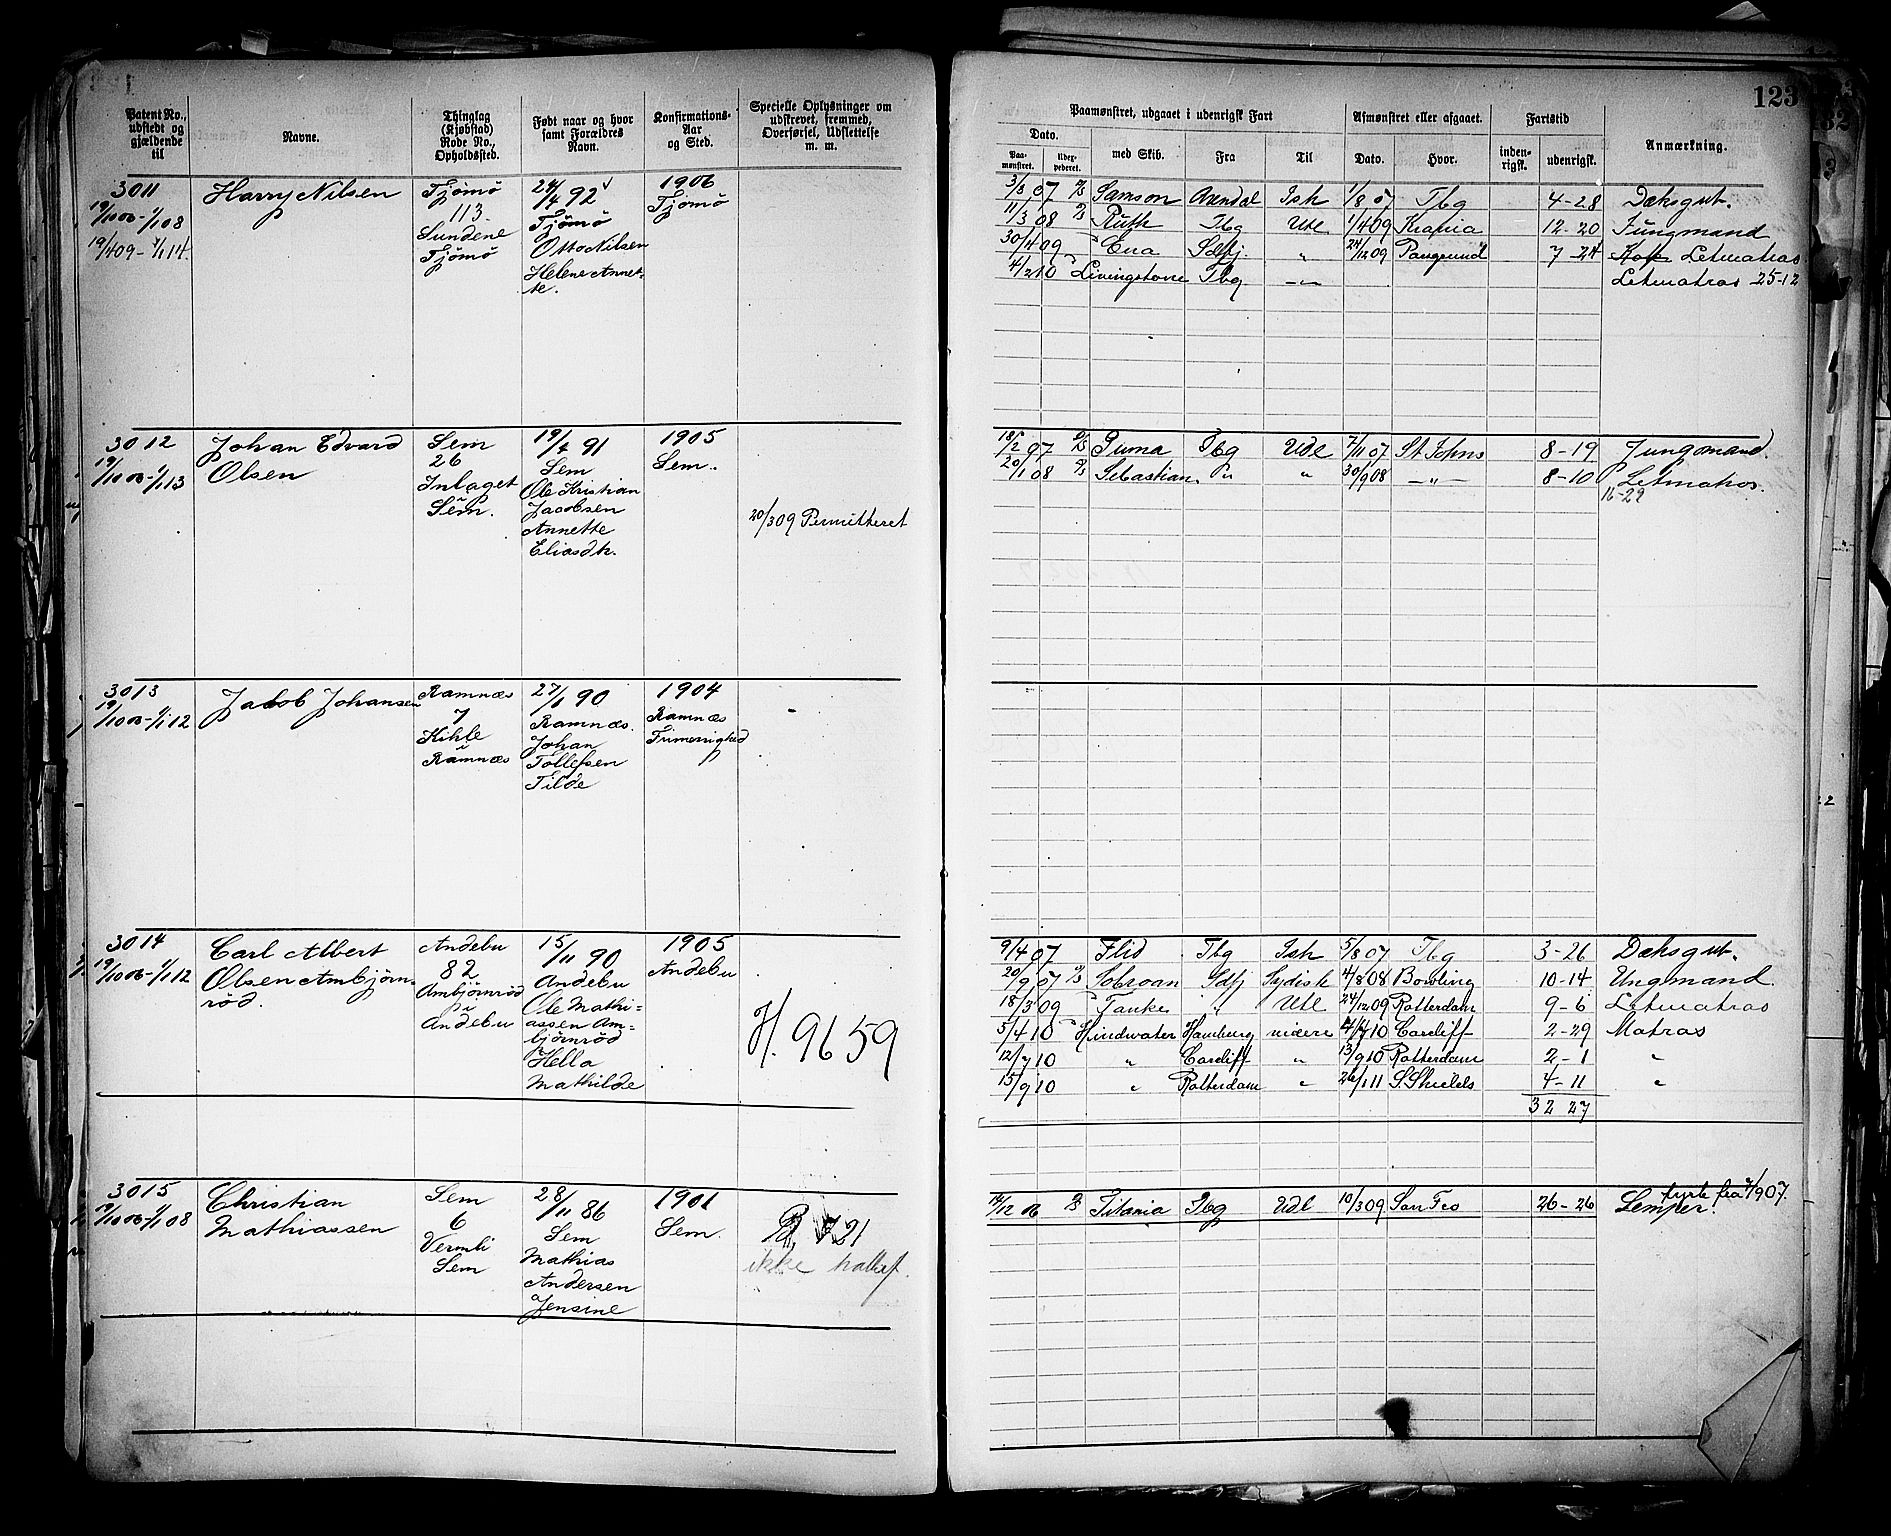 123
Patent No., udstedt og gjældende til
Navne.
Thinglag (Kjøbstad) Rode No., Opholdssted.
Født naar og hvor samt Forældres Navn.
Konfirmations-Aar og Sted.
Specielle Oplysninger om udskrevet, fremmed, Overførsel, Udslettelse m. m.
Paamønstret, udgaaet i udenrigsk Fart
Afmønstret eller afgaaet.
Fartstid
Anmærkning.
Dato.
Paa-mønstret.
med Skib.
Fra
Til
Dato.
Hvor.
inden-rigsk.
udenrigsk.
3011
19/10 06 - 1/1 08
19/4 09 - 1/1 14
Harry Nilsen
Tjømø
113
Sundene
Tjømø
24/4 92
Tjømø
Otto Nilsen
Helene Annet-
te.
1906
Tjømø
3/3 07 Samson Arendal Ish 1/8 07 Tbg 4-28 Dæksgut.
11/3 08 Ruth Tbg Udl 1/4 09 12-20 Jungmand
30/4 09 Eva Sdfj. " 24/12 09 7-24 Letmatros
4/2 10 Livingstone Tbg -"- Letmatros 25-12
3012
19/10 06 - 1/1 13
Johan Edvard
Olsen
Sem
26
Inlaget
Sem.
19/4 91
Sem
Ole Kristian
Jacobsen
Annette
Eliasdtr.
1905
Sem.
20/3 09 Permitteret
18/2 07 Puma Tbg Udl 7/11 07 St Johns 8-19 Jungmand
20/1 08 Sebastian " 30/9 08 -"- 8-10 Letmatros.
16-29
3013
19/10 06 - 1/1 12
Jacob Johansen
Ramnæs
7
Kihle
i
Ramnæs
27/1 90
Ramnæs.
Johan
Tollefsen
Tilde
1904
Ramnæs
Frimenighed
3014
19/10 06 - 1/1 12
Carl Albert
Olsen Ambjørn-
rød.
Andebu
82
Ambjørnrød
i
Andebu
15/11 90
Andebu
Ole Mathi-
assen Am-
bjørnrød
Hella
Mathilde
1905
Andebu
H. 9659
9/4 07 Flid Tbg Ish 5/8 07 Tbg 3-26 Dæksgut.
20/9 07 Sobraon Sdfj Sydish 4/8 08 Bowling 10-14 Ungmand
18/3 09 Tanke " Udl 24/12 09 Rotterdam 9-6 Letmatros
5/4 10 Hindwater Hamburg videre 4/7 10 Cardiff 2-29 Matros
12/7 10 " Cardiff " 13/9 10 Rotterdam 2-1 "
15/9 10 " Rotterdam " 26/1 11 S. Shields 4-11 "
32 27
3015
19/10 06 - 1/1 08
Christian
Mathiassen
Sem
6
Vermli
Sem
28/11 86
Sem
Mathias
Andersen
Jensine
1901
Sem.
21
ikke
14/12 06 Titania Tbg Udl 10/3 09 San Fco 26-26 Lemper. fyrb. fra 4/9 07.